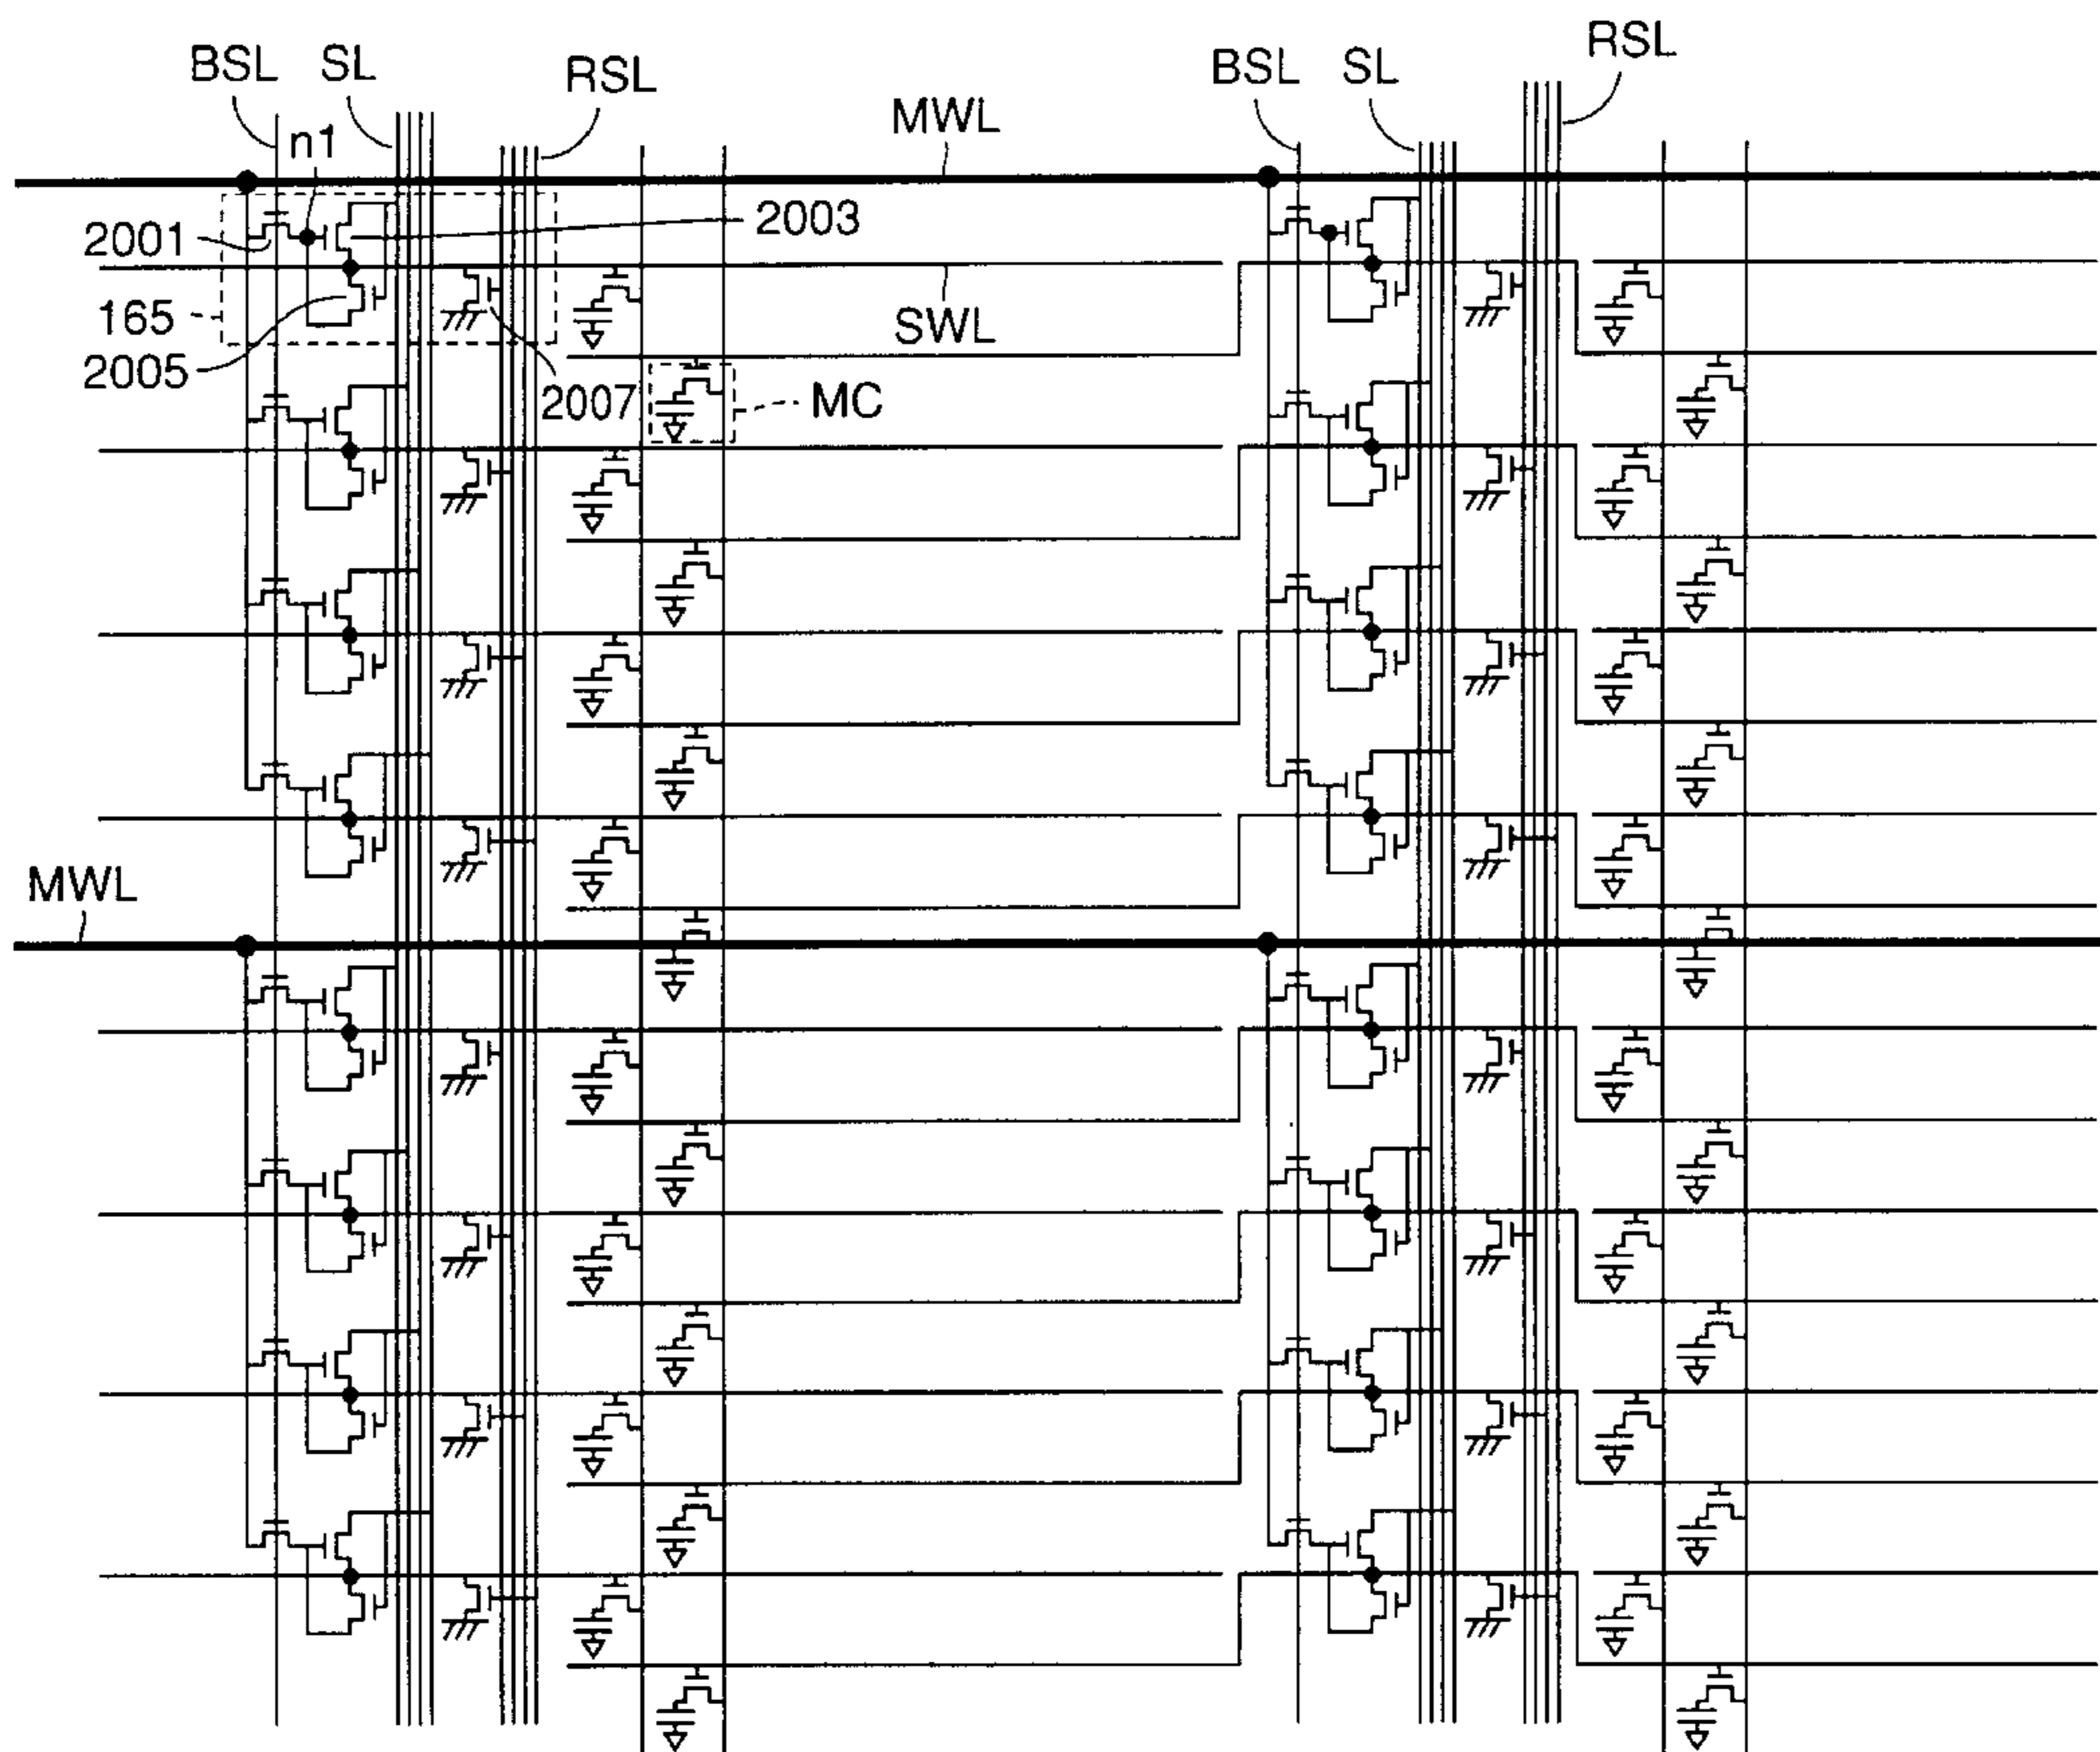 BSL SL RSL MWL BSL SL RSL
n1
2001 2003
165 SWL
2005 2007 MC
MWL